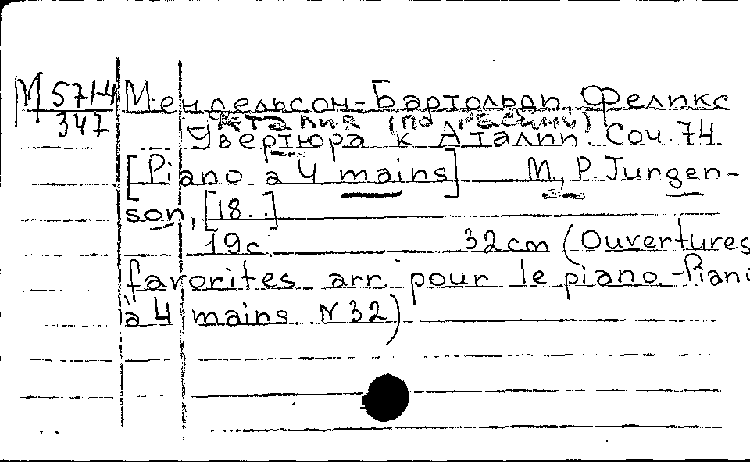 М 5714
347
Мендельсон-Бартольди, Феликс
Аталия (по Расину)
Увертюра к Аталии. Соч. 74.
[Piano à 4 mains] M., P. Jurgen-
son, [18..]
19с. 32cm (Ouvertures
favorites arr. pour le piano-Piano
à 4 mains. N 32)